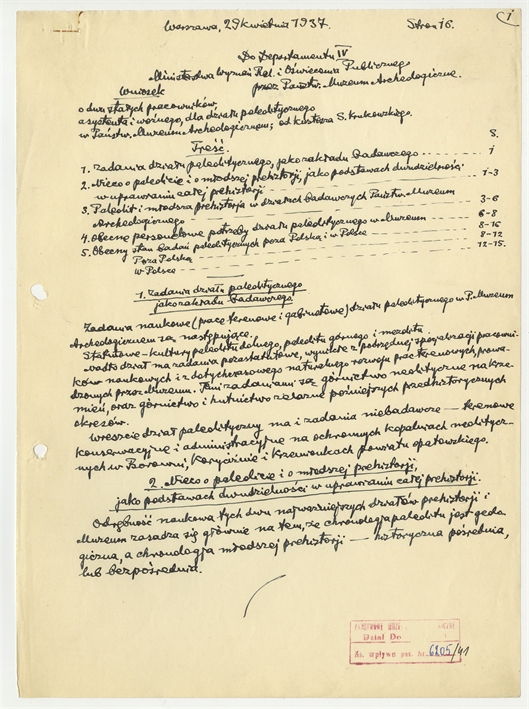 1
Warszawa, 29 kwietnia 1937. Stron 16.
Do Departamentu IV
Ministerstwa Wyznań Rel. i Oświecenia Publicznego
przez Państw. Muzeum Archeologiczne.
Wniosek
o dwu stałych pracowników,
asystenta i woźnego, dla działu paleolitycznego
w Państw. Muzeum Archeologicznem; od kustosza S. Krukowskiego.
Treść. S.
1. Zadania działu paleolitycznego, jako zakładu badawczego 1
2. Nieco o paleolicie i o młodszej prehistorji, jako podstawach dwudzielności
w uprawianiu całej prehistorji 1-3
3. Paleolit i młodsza prehistorja w działach badawczych Państw. Muzeum
Archeologicznego 3-6
4. Obecne personelowe potrzeby działu paleolitycznego w Muzeum 6-8
5. Obecny stan badań paleolitycznych poza Polską i w Polsce 8-16
Poza Polską 8-12
w Polsce 12-15.
1. Zadania działu paleolitycznego
jako zakładu badawczego.
Zadania naukowe (prace terenowe i gabinetowe) działu paleolitycznego w P. Muzeum
Archeologicznem są następujące.
Statutowe – kultury paleolitu dolnego, paleolitu górnego i mezolitu.
Nadto dział ma zadania pozastatutowe, wynikłe z podrzędnej specjalizacji pracowni-
ków naukowych i z dotychczasowego naturalnego rozwoju prac terenowych, prowa-
dzonych przez Muzeum. Temi zadaniami są: górnictwo neolityczne na krze-
mień, oraz górnictwo i hutnictwo żelazne późniejszych przedhistorycznych
okresów.
Wreszcie dział paleolityczny ma i zadania niebadawcze – terenowe
konserwacyjne i administracyjne na ochronnych kopalniach neolitycz-
nych w Borowni, Koryciźnie i Krzemionkach powiatu opatowskiego.
2. Nieco o paleolicie i o młodszej prehistorji,
jako podstawach dwudzielności w uprawianiu całej prehistorji.
Odrębność naukowa tych dwu najważniejszych działów prehistorji i
Muzeum zasadza się głównie na tem, że chronologja paleolitu jest geolo-
giczna, a chronologja młodszej prehistorji – historyczna pośrednia,
lub bezpośrednia.
Dział Do
Nr. wpływu 6205/41